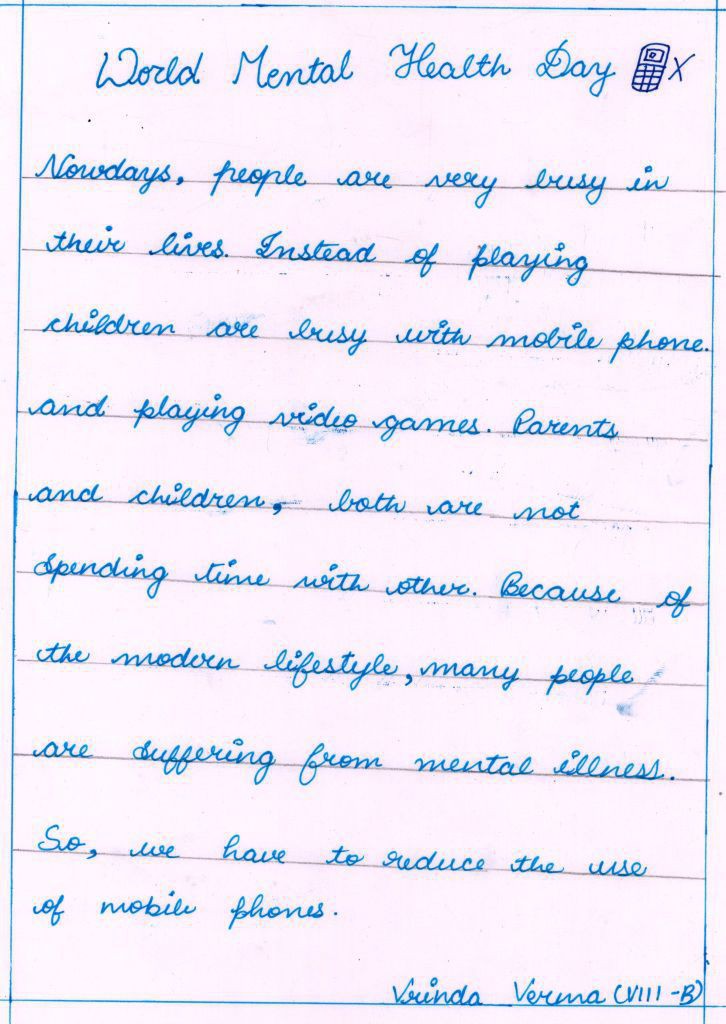 World Mental Health Day
Nowdays, people are very busy in
their lives. Instead of playing
children are busy with mobile phone.
and playing video games. Parents
and children, both are not
spending time with other. Because of
the modern lifestyle, many people
are suffering from mental illness.
So, we have to reduce the use
of mobile phones.
Vrinda Verma (VIII-B)